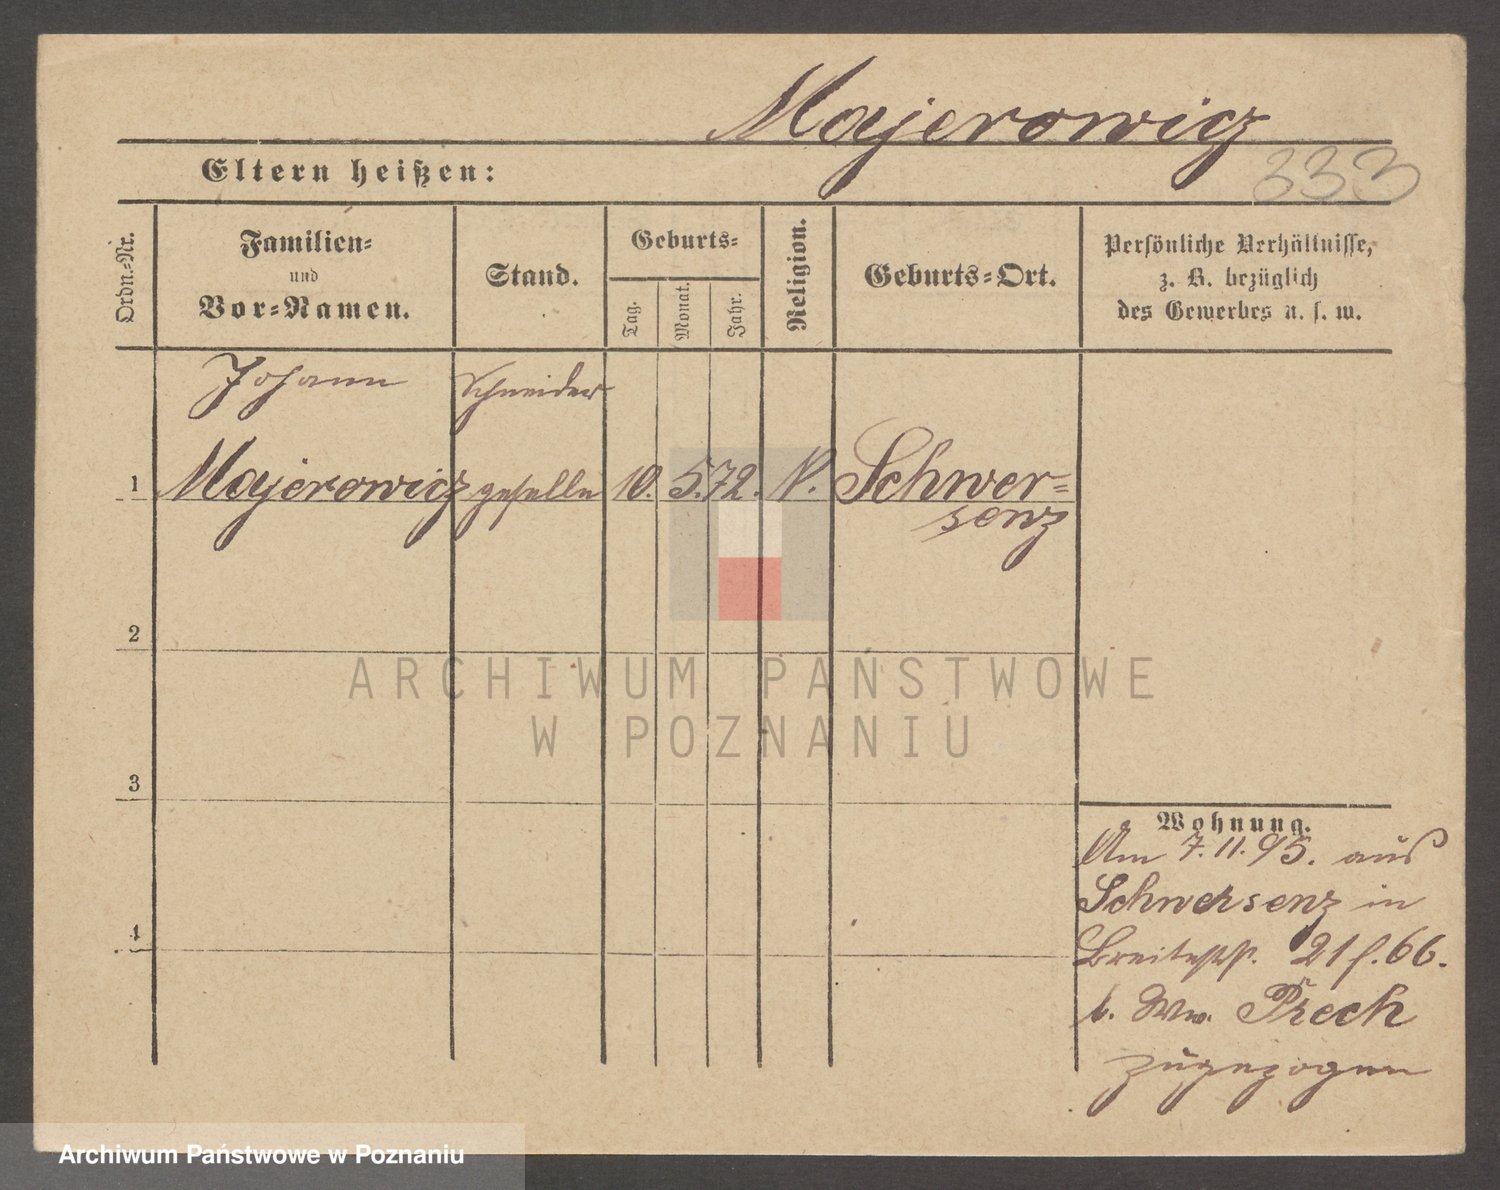 Majerowicz
333
Eltern heißen:
Ordn.-Nr.
Familien-
und
Vor-Namen.
Stand.
Geburts-
Tag.
Monat.
Jahr.
Religion.
Geburts-Ort.
Persönliche Verhältnisse,
z. B. bezüglich
des Gewerbes u. s. w.
Johann Schneider
1 Majerowicz geselle 10. 5. 72. Schwer-
senz
2
3
4
Wohnung.
Am 7.11.95. aus
Schwersenz in
Breitestr. 21 f. 66.
b. Ww.
zugezogen
ARCHIWUM PAŃSTWOWE
W POZNANIU
Archiwum Państwowe w Poznaniu